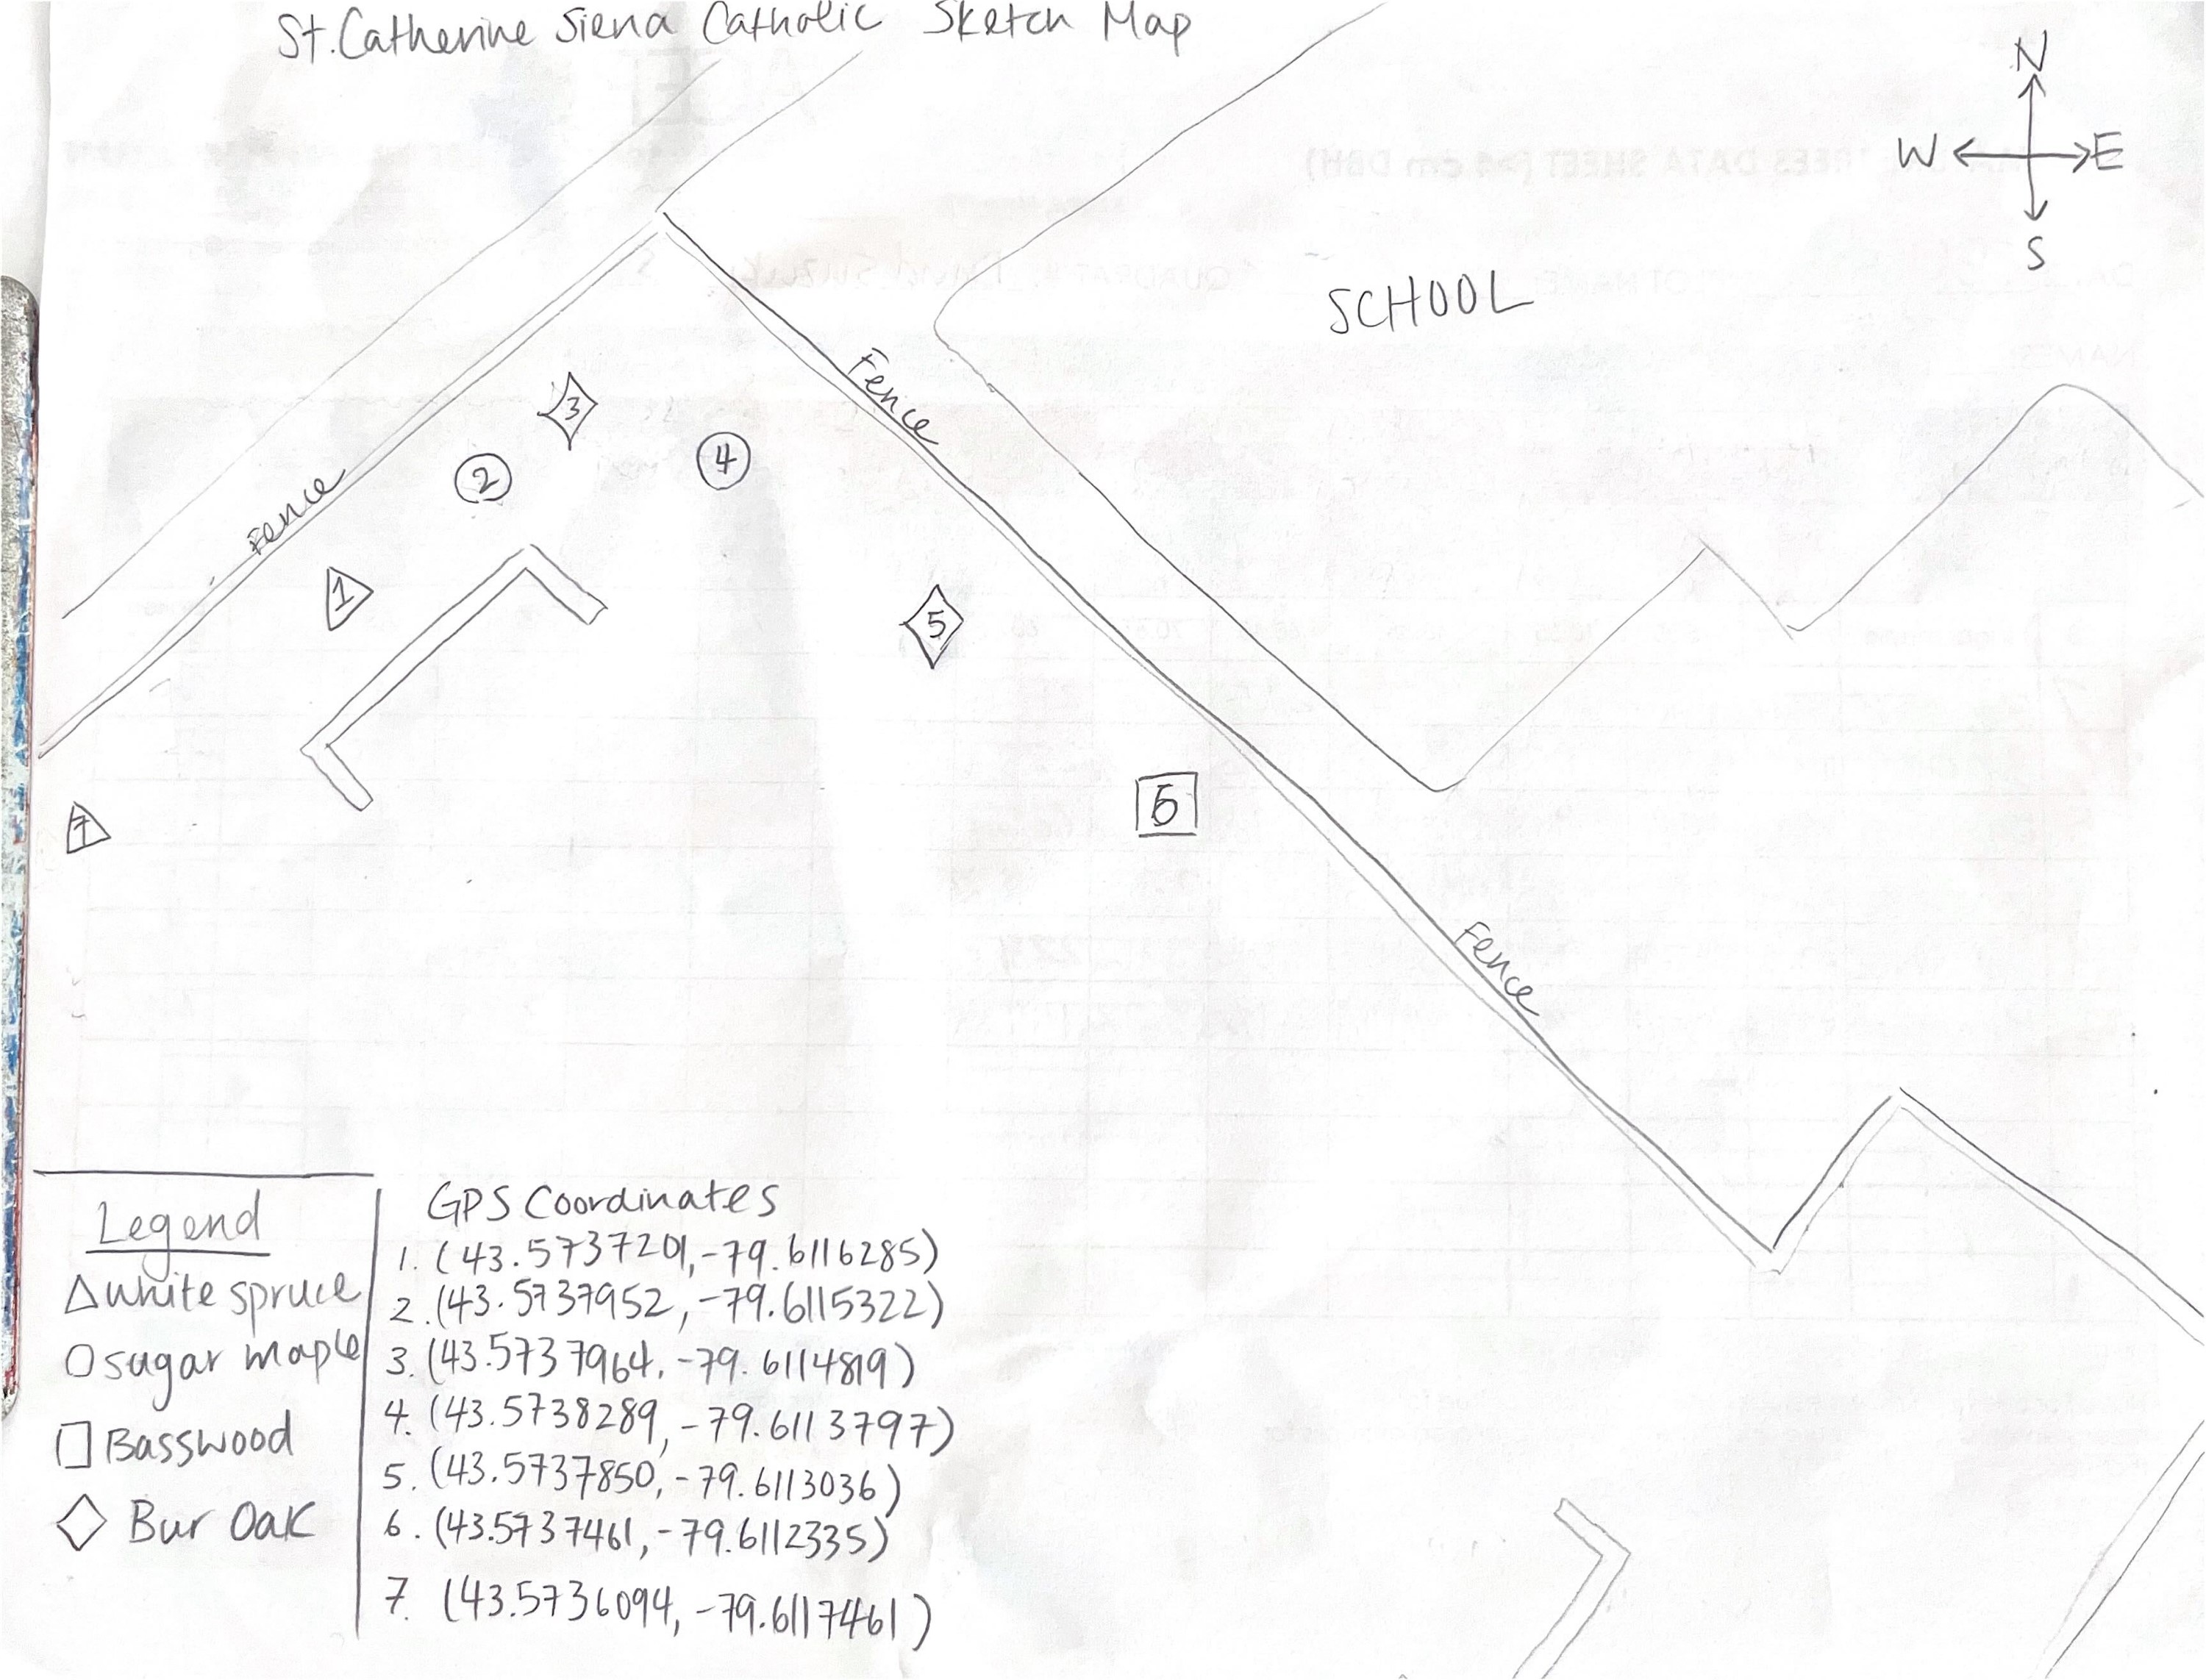 St. Catherine Siena Catholic Sketch Map
N
W E
S
SCHOOL
Fence
Fence
Fence
3
2
4
1
5
6
7
Legend
white spruce
sugar maple
Basswood
Bur Oak
GPS Coordinates
1. (43.5737201, -79.6116285)
2. (43.5737952, -79.6115322)
3. (43.5737964, -79.6114819)
4. (43.5738289, -79.6113797)
5. (43.5737850, -79.6113036)
6. (43.5737461, -79.6112335)
7. (43.5736094, -79.6117461)